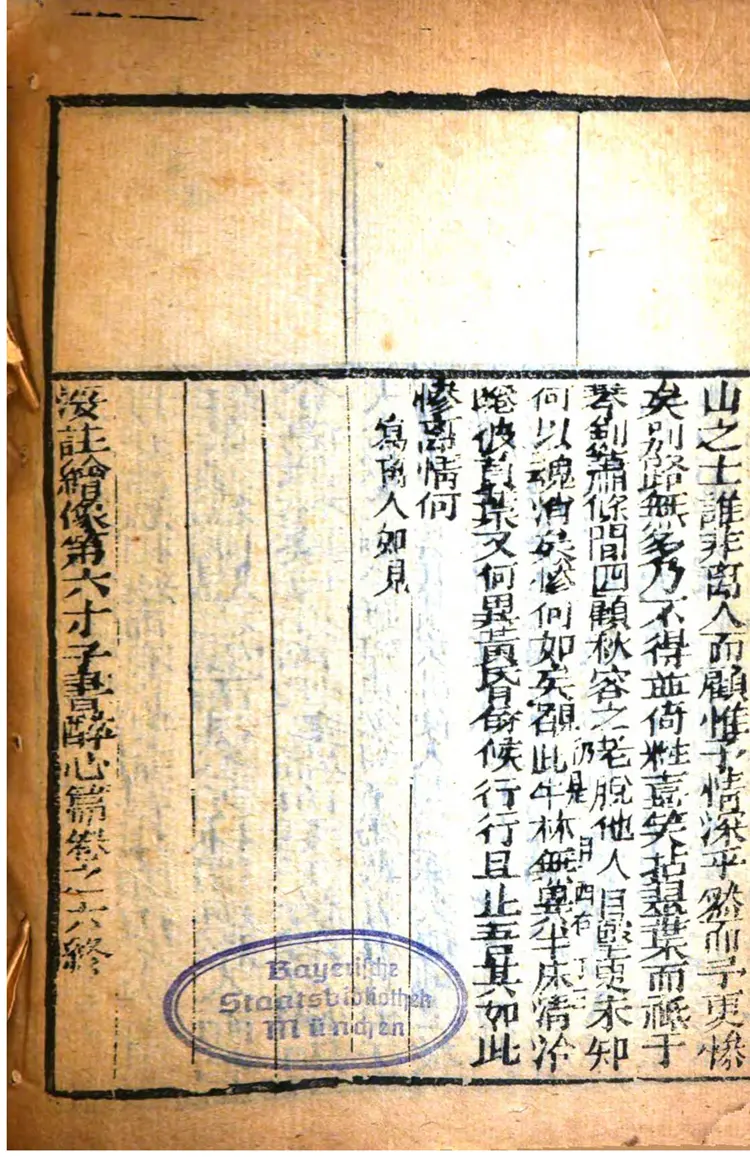 山之士誰非离人而顧惟予情深乎愁而予更慘
矣别路無多乃不得並倚粧臺笑拈翠葉而祗于
琴劍蕭條間四顧秋容之老脫他人目擊更未知
何以魂消矣慘何如矣覩此半林無異半床清冷
又何異黃昏時候行行且止吾其如此
慘离情何
寫离人如見
註繪像第六才子書醉心篇卷之六終
Bayerische
Staatsbibliothek
München